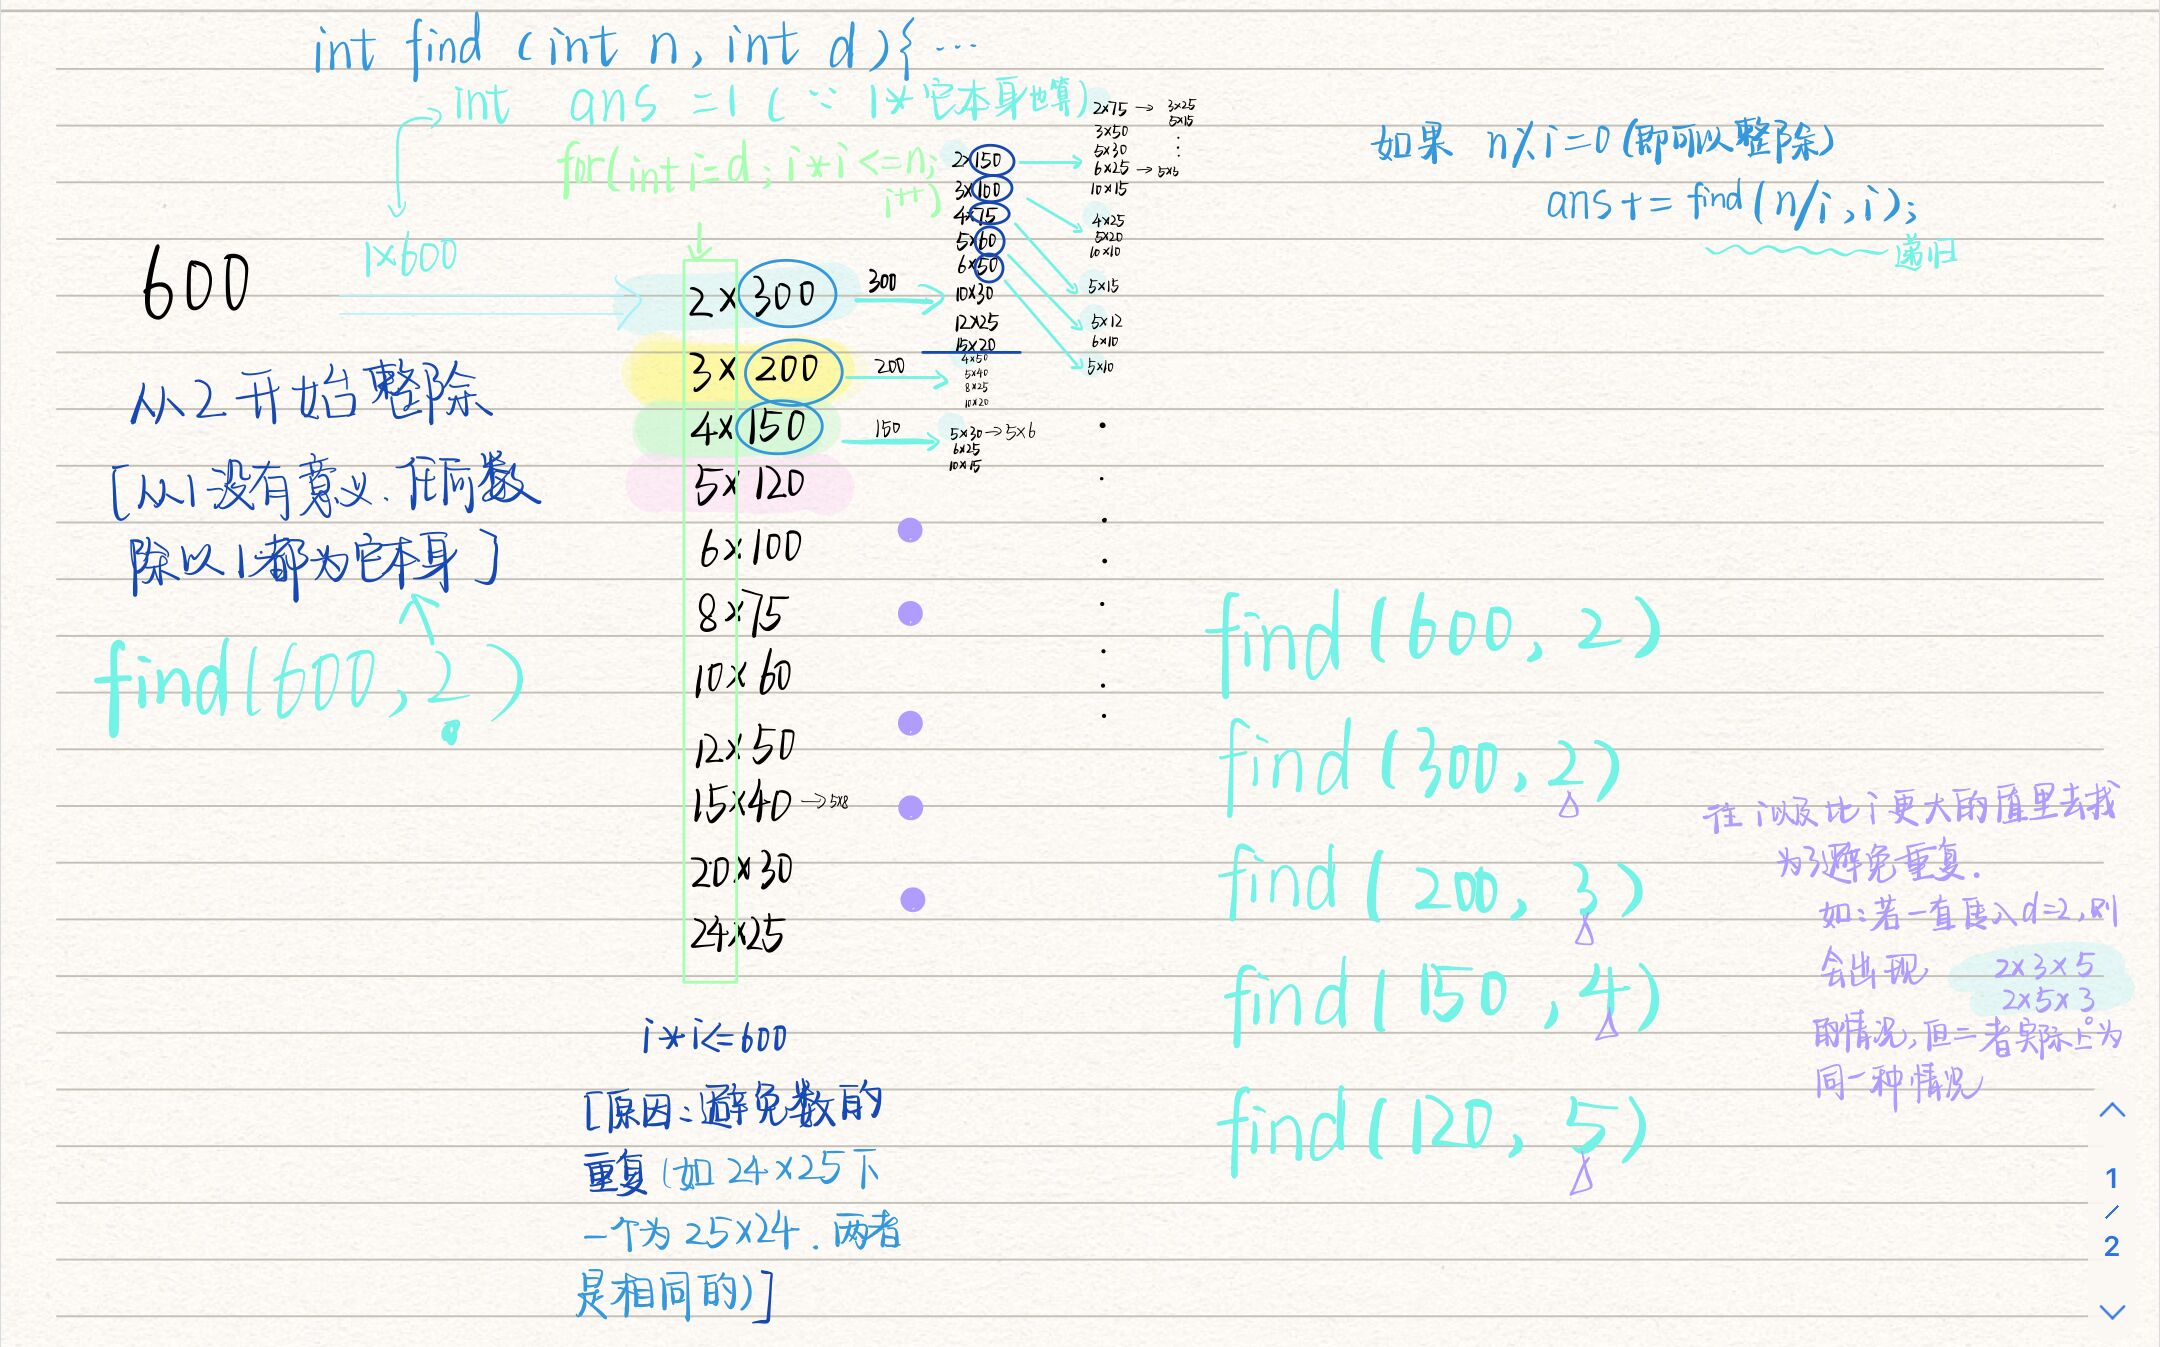 int find (int n, int d){ ...
int ans =1 (∵ 1*它本身也算)
for(int i=d; i*i<=n;
i++)
如果 n%i=0 (即可以整除)
ans += find(n/i, i);
递归
600
1×600
从2开始整除
[从1没有意义.任何数
除以1都为它本身]
find(600, 2)
2×300
3×200
4×150
5×120
6×100
8×75
10×60
12×50
15×40 → 5×8
20×30
24×25
300
2×150
3×100
4×75
5×60
6×50
10×30
12×25
15×20
200
4×50
5×40
8×25
10×20
150
5×30 → 5×6
6×25
10×15
2×75 → 3×25
5×15
3×50
5×30
6×25 → 5×5
10×15
4×25
5×20
10×10
5×15
5×12
6×10
5×10
i*i<=600
[原因:避免数的
重复(如 24×25下
一个为 25×24. 两者
是相同的)]
find(600, 2)
find(300, 2)
find(200, 3)
find(150, 4)
find(120, 5)
往i以及比i更大的值里去找
为了避免重复.
如:若一直传入d=2,则
会出现 2×3×5
2×5×3
的情况,但二者实际上为
同一种情况
1
/
2